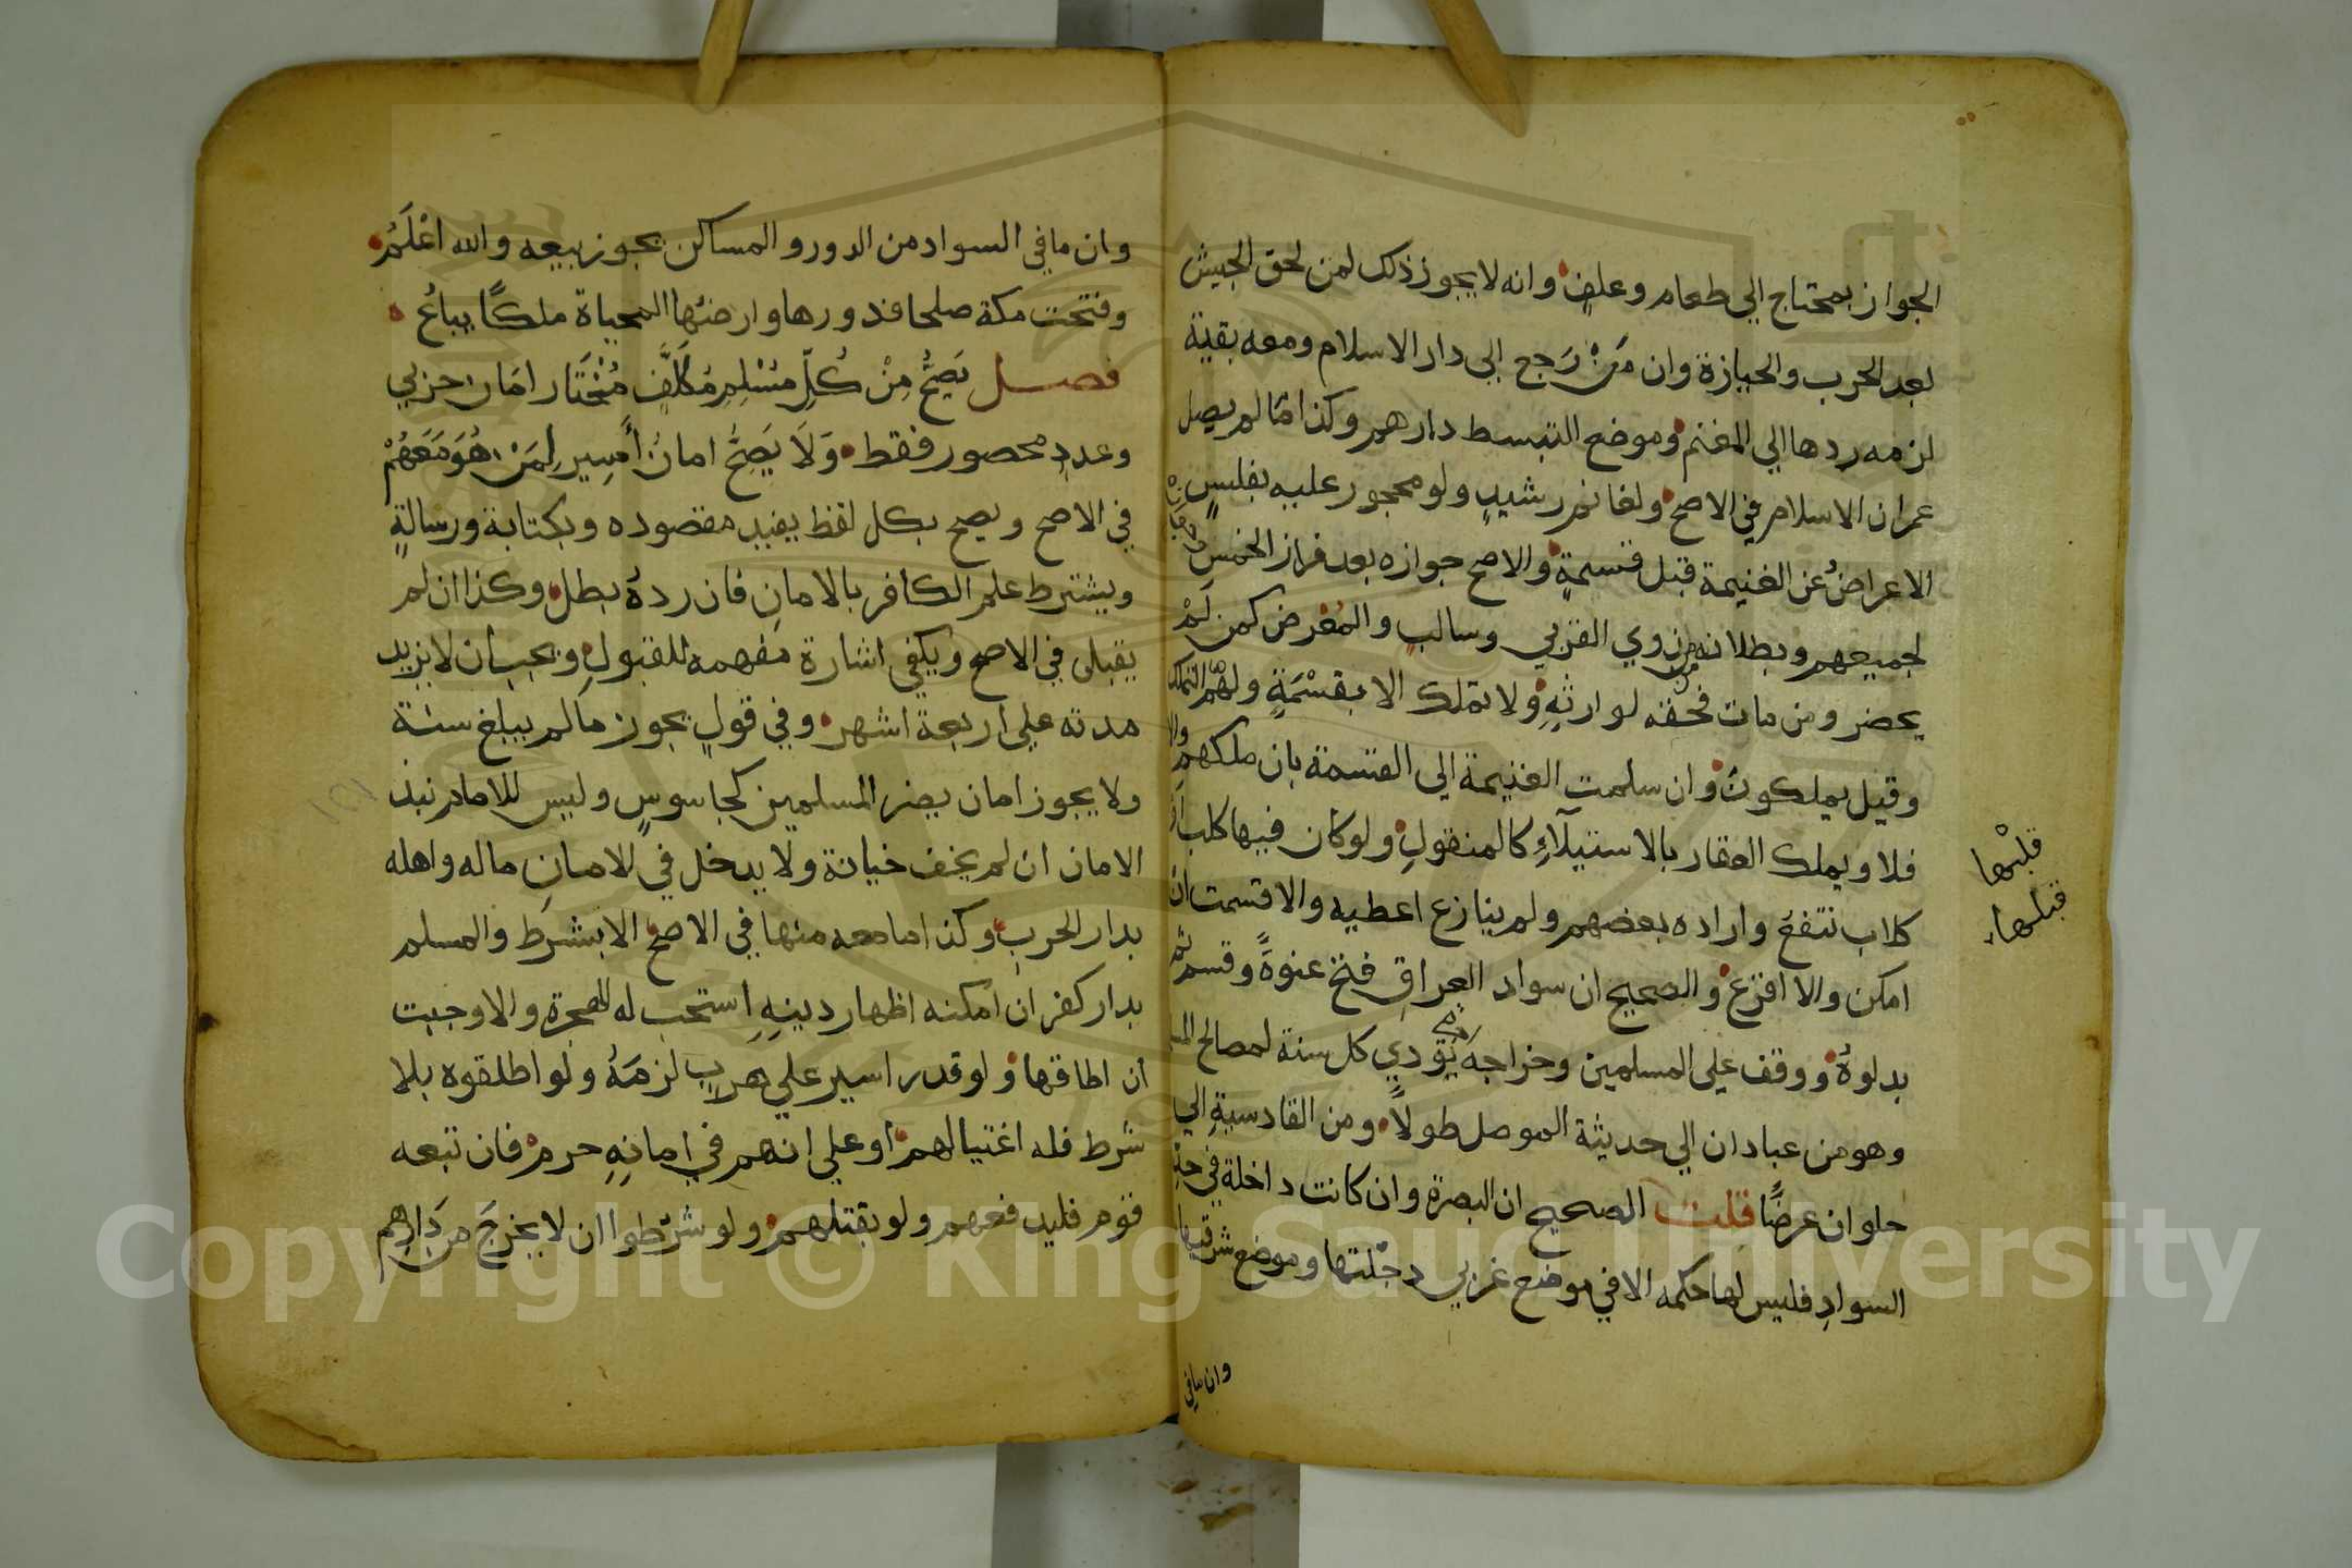 الجواز بمحتاج الي طعام وعلف وانه لا يجوز ذلك لمن لحق الجيش
بعد الحرب والحيازة وان من رجع الي دار الاسلام ومعه بقية
لزمه ردها الي المغنم وموضع التبسط دارهم وكذا ما لم يصل
عمران الاسلام في الاصح ولغانم رشيد ولو محجور عليه بفلس
الاعراض عن الغنيمة قبل قسمة والاصح جوازه بعد فراز الخمس
لجميعهم وبطلانه من ذوي القربي وسالب والمعرض كمن لم
يحضر ومن مات فحقه لوارثه ولا تملك الا بقسمة ولهم التملك
وقيل يملكون وان سلمت الغنيمة الي القسمة بان ملكهم والا
فلا ويملك العقار بالاستيلاء كالمنقول ولو كان فيها كلب او
كلاب تنفع واراده بعضهم ولم ينازع اعطيه والا قسمت ان
امكن والا اقرع والصحيح ان سواد العراق فتح عنوة وقسم ثم
بدلوه ووقف علي المسلمين وخراجه يؤدي كل سنة لمصالح
وهو من عبادان الي حديثة الموصل طولا ومن القادسية الي
حلوان عرضا قلت الصحيح ان البصرة وان كانت داخلة في حد
السواد فليس لها حكمه الا في موضع غربي دجلتها وموضع شرقيها
وان ما في
قلبها
قبلها
وان ما في السواد من الدور والمساكن يجوز بيعه والله اعلم
وفتحت مكة صلحا فدورها وارضها المحياة ملكا يباع
فصل يصح من كل مسلم مكلف مختار امان حربي
وعدد محصور فقط ولا يصح امان أسير لمن هو معهم
في الاصح ويصح بكل لفظ يفيد مقصوده وبكتابة ورسالة
ويشترط علم الكافر بالامان فان رده بطل وكذا ان لم
يقبل في الاصح ويكفي اشارة مفهمه للقبول ويجب ان لا يزيد
مدته علي اربعة اشهر وفي قول يجوز ما لم يبلغ سنة
ولا يجوز امان يضر المسلمين كجاسوس وليس للامام نبذ
الامان ان لم يخف خيانة ولا يدخل في الامان ماله واهله
بدار الحرب وكذا ما معه منها في الاصح الا بشرط والمسلم
بدار كفر ان امكنه اظهار دينه استحب له الهجرة والا وجبت
ان اطاقها ولو قدر اسير علي هرب لزمه ولو اطلقوه بلا
شرط فله اغتيالهم او علي انهم في امانه حرم فان تبعه
قوم فليدفعهم ولو بقتلهم ولو شرطوا ان لا يخرج من دارهم
١٥١
Copyright © King Saud University